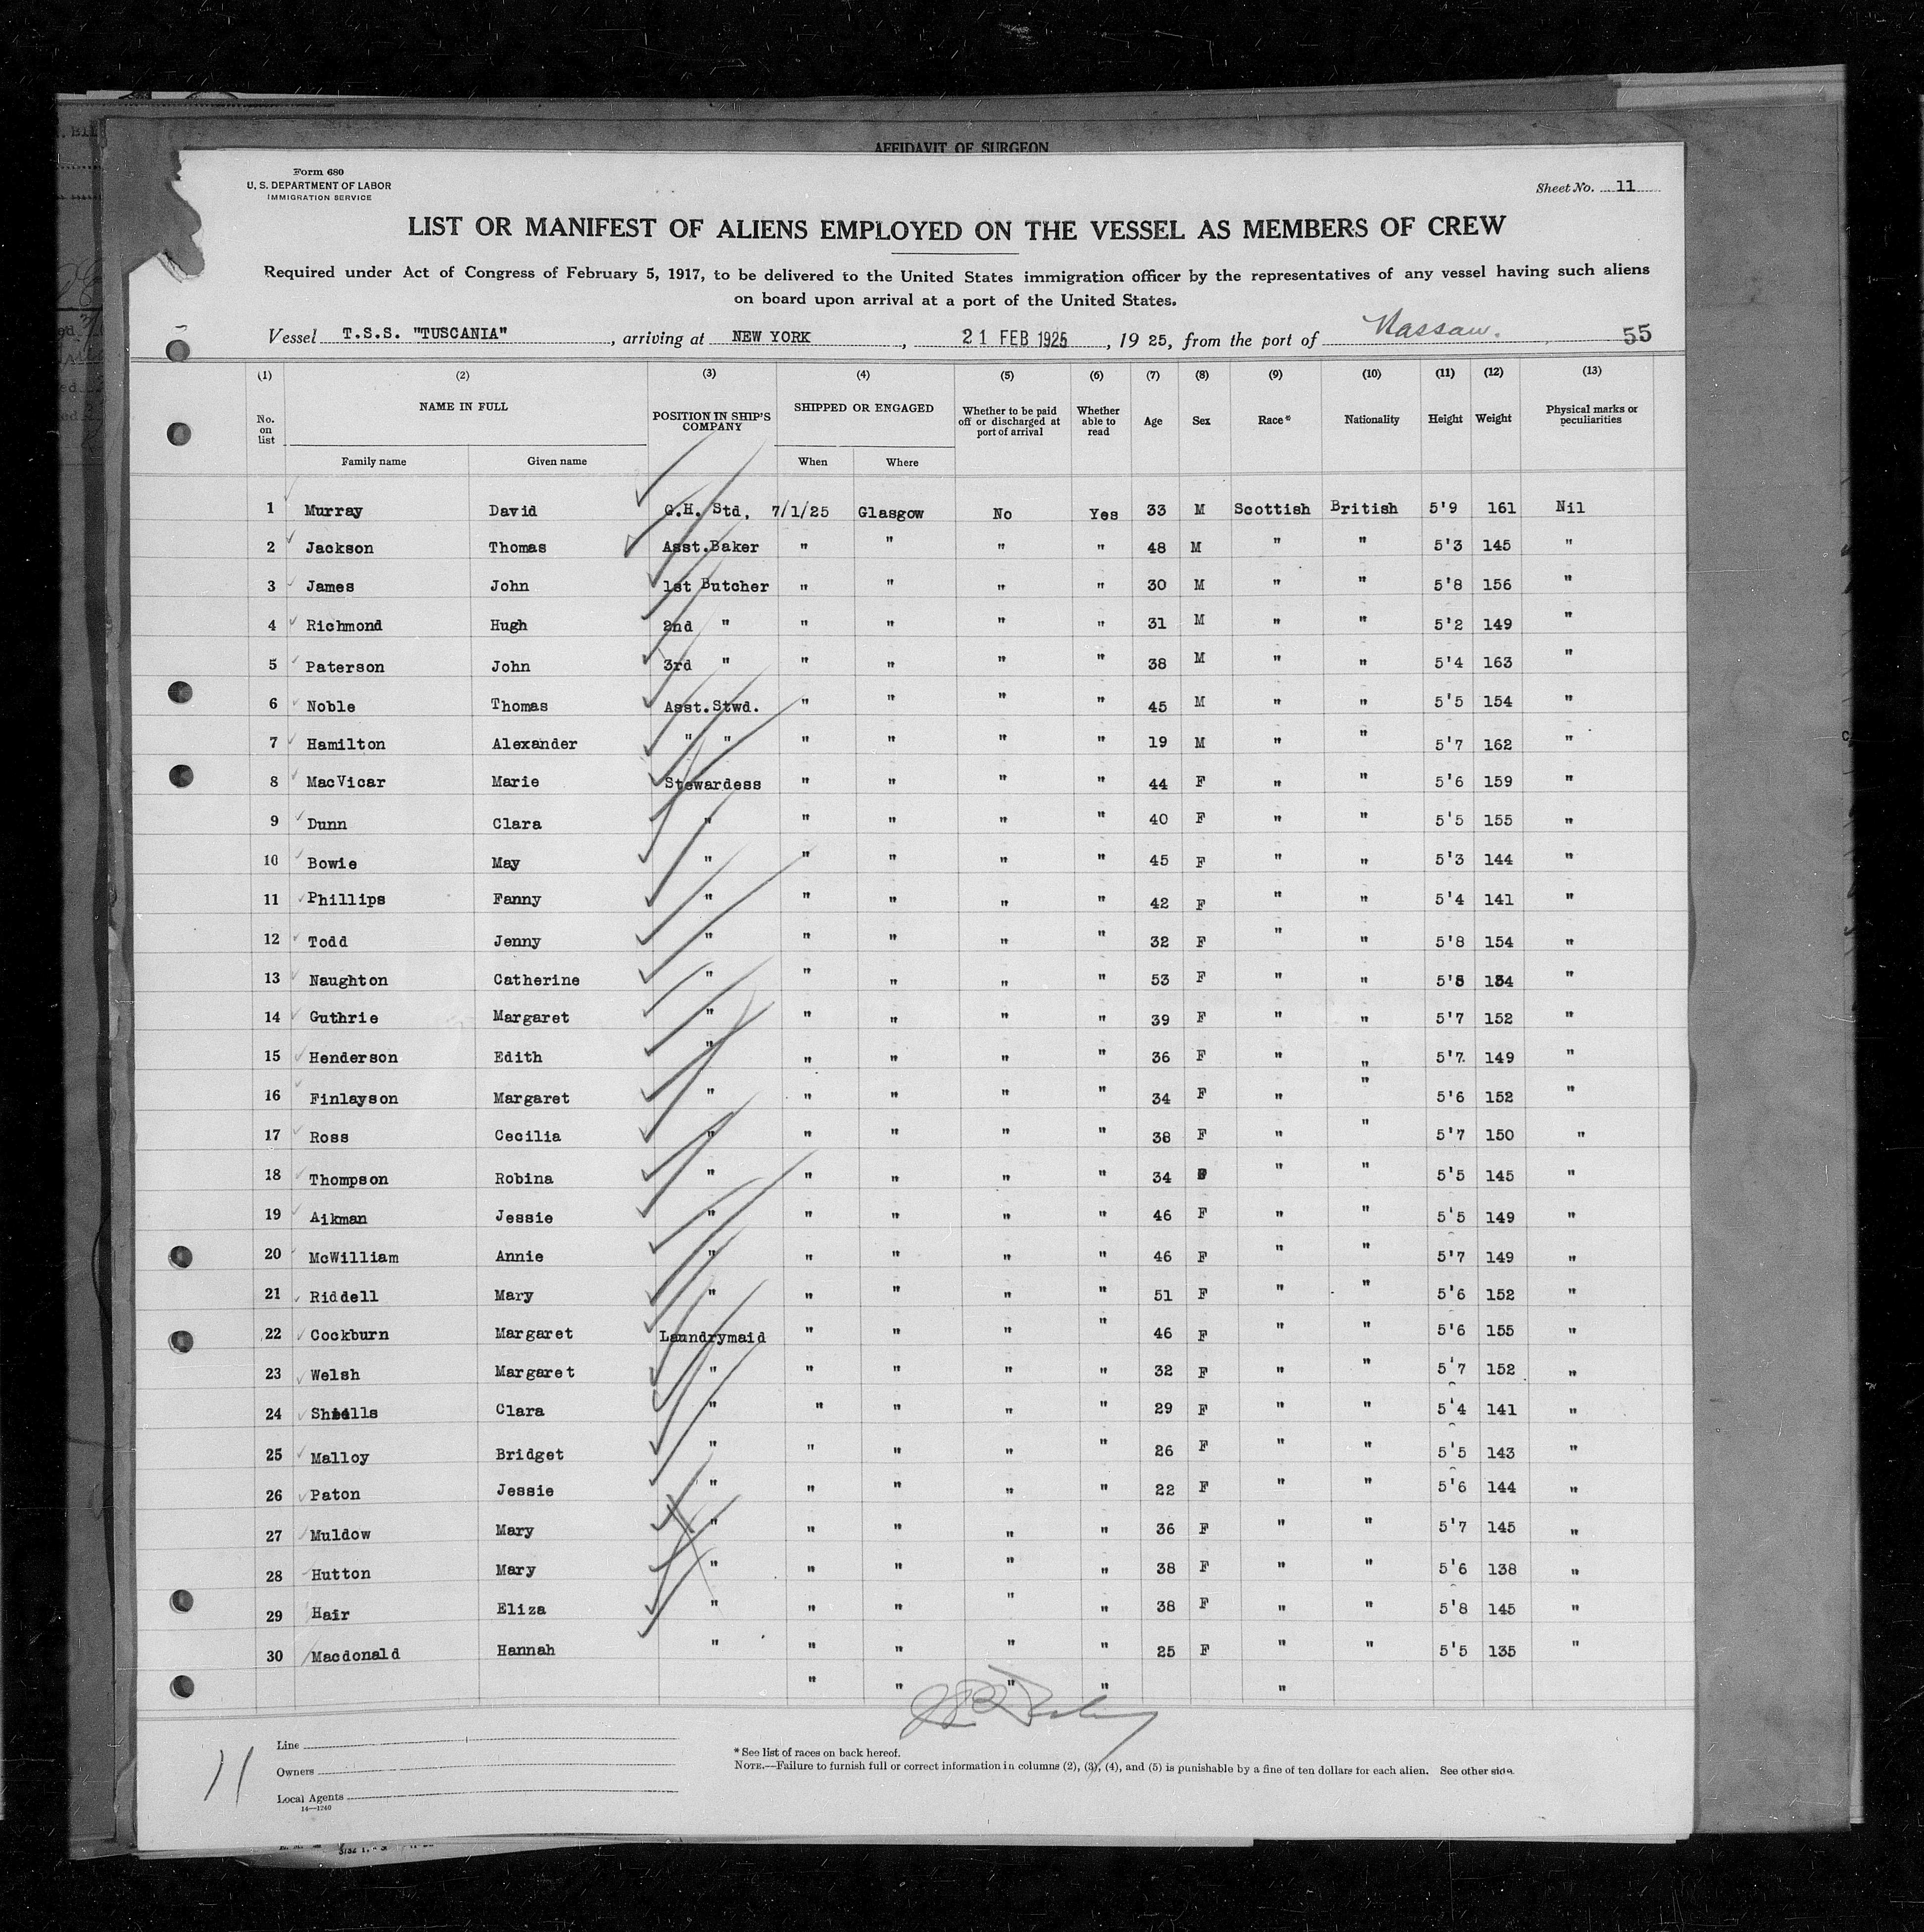 AFFIDAVIT OF SURGEON
Form 680
U. S. DEPARTMENT OF LABOR
IMMIGRATION SERVICE
Sheet No. 11
LIST OR MANIFEST OF ALIENS EMPLOYED ON THE VESSEL AS MEMBERS OF CREW
Required under Act of Congress of February 5, 1917, to be delivered to the United States immigration officer by the representatives of any vessel having such aliens
on board upon arrival at a port of the United States.
Vessel T.S.S. "TUSCANIA", arriving at NEW YORK, 21 FEB 1925, 1925, from the port of Nassau. 55
(1) (2) (3) (4) (5) (6) (7) (8) (9) (10) (11) (12) (13)
No. on list NAME IN FULL Family name Given name POSITION IN SHIP'S COMPANY SHIPPED OR ENGAGED When Where Whether to be paid off or discharged at port of arrival Whether able to read Age Sex Race* Nationality Height Weight Physical marks or peculiarities
1 Murray David G.H. Std. 7/1/25 Glasgow No Yes 33 M Scottish British 5'9 161 Nil
2 Jackson Thomas Asst.Baker " " " " 48 M " " 5'3 145 "
3 James John 1st Butcher " " " " 30 M " " 5'8 156 "
4 Richmond Hugh 2nd " " " " " 31 M " " 5'2 149 "
5 Paterson John 3rd " " " " " 38 M " " 5'4 163 "
6 Noble Thomas Asst.Stwd. " " " " 45 M " " 5'5 154 "
7 Hamilton Alexander " " " " " " 19 M " " 5'7 162 "
8 MacVicar Marie Stewardess " " " " 44 F " " 5'6 159 "
9 Dunn Clara " " " " " 40 F " " 5'5 155 "
10 Bowie May " " " " " 45 F " " 5'3 144 "
11 Phillips Fanny " " " " " 42 F " " 5'4 141 "
12 Todd Jenny " " " " " 32 F " " 5'8 154 "
13 Naughton Catherine " " " " " 53 F " " "
14 Guthrie Margaret " " " " " 39 F " " 5'7 152 "
15 Henderson Edith " " " " " 36 F " " 5'7 149 "
16 Finlayson Margaret " " " " " 34 F " " 5'6 152 "
17 Ross Cecilia " " " " " 38 F " " 5'7 150 "
18 Thompson Robina " " " " " 34 " " 5'5 145 "
19 Aikman Jessie " " " " " 46 F " " 5'5 149 "
20 McWilliam Annie " " " " " 46 F " " 5'7 149 "
21 Riddell Mary " " " " " 51 F " " 5'6 152 "
22 Cockburn Margaret Laundrymaid " " " " 46 F " " 5'6 155 "
23 Welsh Margaret " " " " " 32 F " " 5'7 152 "
24 Shiells Clara " " " " " 29 F " " 5'4 141 "
25 Malloy Bridget " " " " " 26 F " " 5'5 143 "
26 Paton Jessie " " " " " 22 F " " 5'6 144 "
27 Muldow Mary " " " " " 36 F " " 5'7 145 "
28 Hutton Mary " " " " " 38 F " " 5'6 138 "
29 Hair Eliza " " " " " 38 F " " 5'8 145 "
30 Macdonald Hannah " " " " " 25 F " " 5'5 135 "
" " " " "
Line
Owners
Local Agents
14—1240
11
* See list of races on back hereof.
NOTE.—Failure to furnish full or correct information in columns (2), (3), (4), and (5) is punishable by a fine of ten dollars for each alien. See other side.